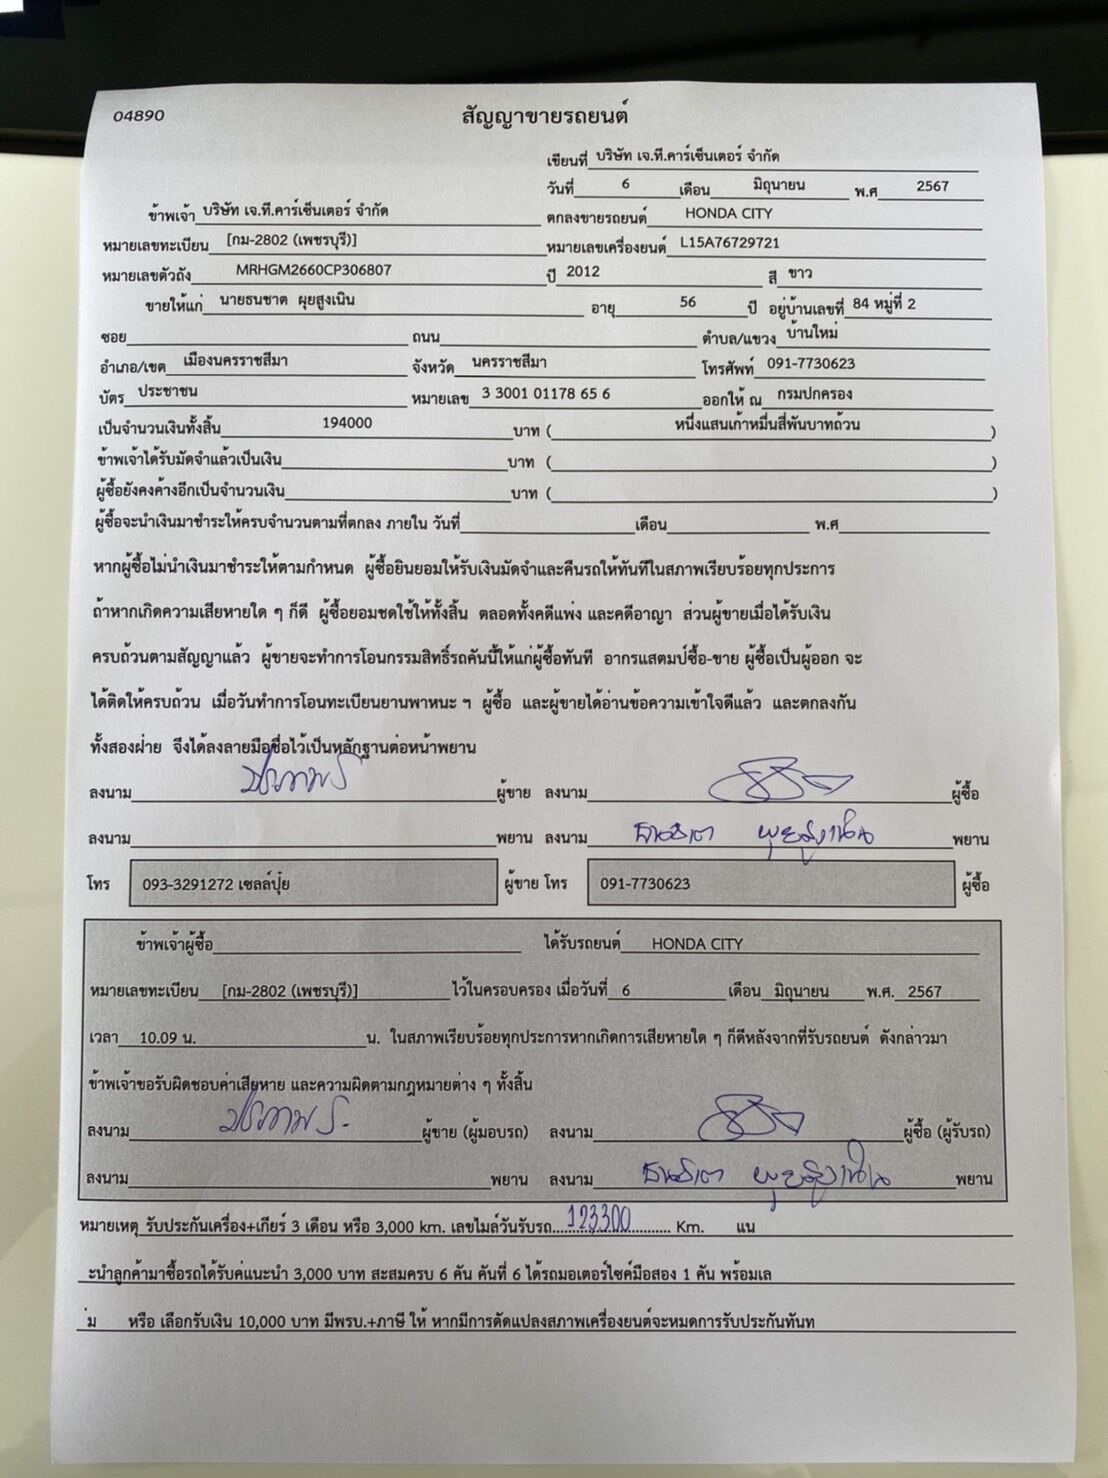 04890
สัญญาขายรถยนต์
เขียนที่ บริษัท เจ.ที.คาร์เซ็นเตอร์ จำกัด
วันที่ 6 เดือน มิถุนายน พ.ศ 2567
ข้าพเจ้า บริษัท เจ.ที.คาร์เซ็นเตอร์ จำกัด ตกลงขายรถยนต์ HONDA CITY
หมายเลขทะเบียน [กม-2802 (เพชรบุรี)] หมายเลขเครื่องยนต์ L15A76729721
หมายเลขตัวถัง MRHGM2660CP306807 ปี 2012 สี ขาว
ขายให้แก่ นายธนชาต ผุยสูงเนิน อายุ 56 ปี อยู่บ้านเลขที่ 84 หมู่ที่ 2
ซอย ถนน ตำบล/แขวง บ้านใหม่
อำเภอ/เขต เมืองนครราชสีมา จังหวัด นครราชสีมา โทรศัพท์ 091-7730623
บัตร ประชาชน หมายเลข 3 3001 01178 65 6 ออกให้ ณ กรมปกครอง
เป็นจำนวนเงินทั้งสิ้น 194000 บาท ( หนึ่งแสนเก้าหมื่นสี่พันบาทถ้วน )
ข้าพเจ้าได้รับมัดจำแล้วเป็นเงิน บาท ( )
ผู้ซื้อยังคงค้างอีกเป็นจำนวนเงิน บาท ( )
ผู้ซื้อจะนำเงินมาชำระให้ครบจำนวนตามที่ตกลง ภายใน วันที่ เดือน พ.ศ
หากผู้ซื้อไม่นำเงินมาชำระให้ตามกำหนด ผู้ซื้อยินยอมให้รับเงินมัดจำและคืนรถให้ทันทีในสภาพเรียบร้อยทุกประการ
ถ้าหากเกิดความเสียหายใด ๆ ก็ดี ผู้ซื้อยอมชดใช้ให้ทั้งสิ้น ตลอดทั้งคดีแพ่ง และคดีอาญา ส่วนผู้ขายเมื่อได้รับเงิน
ครบถ้วนตามสัญญาแล้ว ผู้ขายจะทำการโอนกรรมสิทธิ์รถคันนี้ให้แก่ผู้ซื้อทันที อากรแสตมป์ซื้อ-ขาย ผู้ซื้อเป็นผู้ออก จะ
ได้ติดให้ครบถ้วน เมื่อวันทำการโอนทะเบียนยานพาหนะ ฯ ผู้ซื้อ และผู้ขายได้อ่านข้อความเข้าใจดีแล้ว และตกลงกัน
ทั้งสองฝ่าย จึงได้ลงลายมือชื่อไว้เป็นหลักฐานต่อหน้าพยาน
ลงนาม ผู้ขาย ลงนาม ผู้ซื้อ
ลงนาม พยาน ลงนาม ผุยสูงเนิน พยาน
โทร 093-3291272 เซลล์ปุ๋ย ผู้ขาย โทร 091-7730623 ผู้ซื้อ
ข้าพเจ้าผู้ซื้อ ได้รับรถยนต์ HONDA CITY
หมายเลขทะเบียน [กม-2802 (เพชรบุรี)] ไว้ในครอบครอง เมื่อวันที่ 6 เดือน มิถุนายน พ.ศ. 2567
เวลา 10.09 น. น. ในสภาพเรียบร้อยทุกประการหากเกิดการเสียหายใด ๆ ก็ดีหลังจากที่รับรถยนต์ ดังกล่าวมา
ข้าพเจ้าขอรับผิดชอบค่าเสียหาย และความผิดตามกฎหมายต่าง ๆ ทั้งสิ้น
ลงนาม ผู้ขาย (ผู้มอบรถ) ลงนาม ผู้ซื้อ (ผู้รับรถ)
ลงนาม พยาน ลงนาม ผุยสูงเนิน พยาน
หมายเหตุ รับประกันเครื่อง+เกียร์ 3 เดือน หรือ 3,000 km. เลขไมล์วันรับรถ...123300... Km. แน
ะนำลูกค้ามาซื้อรถได้รับค่แนะนำ 3,000 บาท สะสมครบ 6 คัน คันที่ 6 ได้รถมอเตอร์ไซค์มือสอง 1 คัน พร้อมเล
่ม หรือ เลือกรับเงิน 10,000 บาท มีพรบ.+ภาษี ให้ หากมีการดัดแปลงสภาพเครื่องยนต์จะหมดการรับประกันทันท